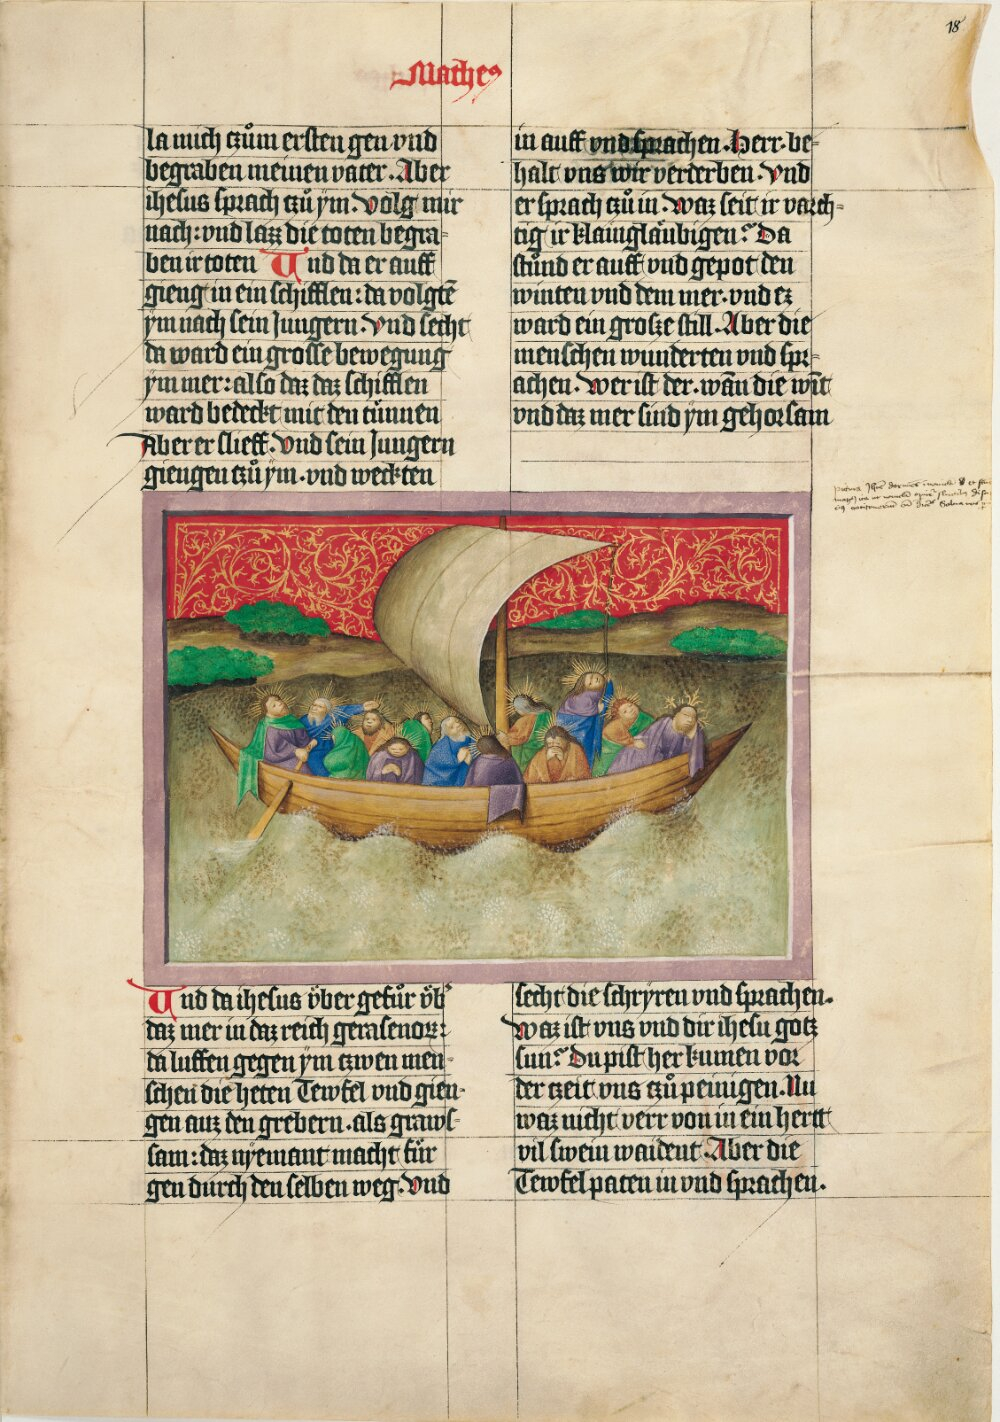 18
Matheꝰ
la mich tzům ersten gen vnd
begraben meinen vater. Aber
ihesus sprach tzů ym. Volg mir
nach: vnd lazz die toten begra-
ben ir toten Und da er auff
gieng in ein schifflen: da volgtē
ym nach sein Jungern. Vnd secht
da ward ein grosse bewegung
ym mer: also daz daz schifflen
ward bedeckt mit den tünnen
Aber er slieff. Vnd sein Jungern
giengen tzů ym. vnd weckten
in auff vnd sprachen. Herr. be-
halt vns wir verterben. Vnd
er sprach tzů in. Waz seit ir vorch-
tig ir klaingläubigen? Da
stůnd er auff vnd gepot den
winten vnd dem mer. vnd ez
ward ein grosze still. Aber die
menschen wunderten vnd spr-
achen. Wer ist der. wān die wīt
vnd daz mer sind ym gehorsam
Und da ihesus über gefůr üb
daz mer in daz reich gerasenoꝝ:
da luffen gegen ym tzwen men-
schen die heten Tewfel vnd gien-
gen auz den grebern. als graws-
sam: daz nyemant macht für
gen durch den selben weg. Vnd
secht die schryren vnd sprachen.
Waz ist vns vnd dir ihesu gotz
sun? Du pist her kumen vor
der tzeit vns tzů peinigen. Nu
waz nicht verr von in ein hertt
vil swein waident. Aber die
Tewfel paten in vnd sprachen.